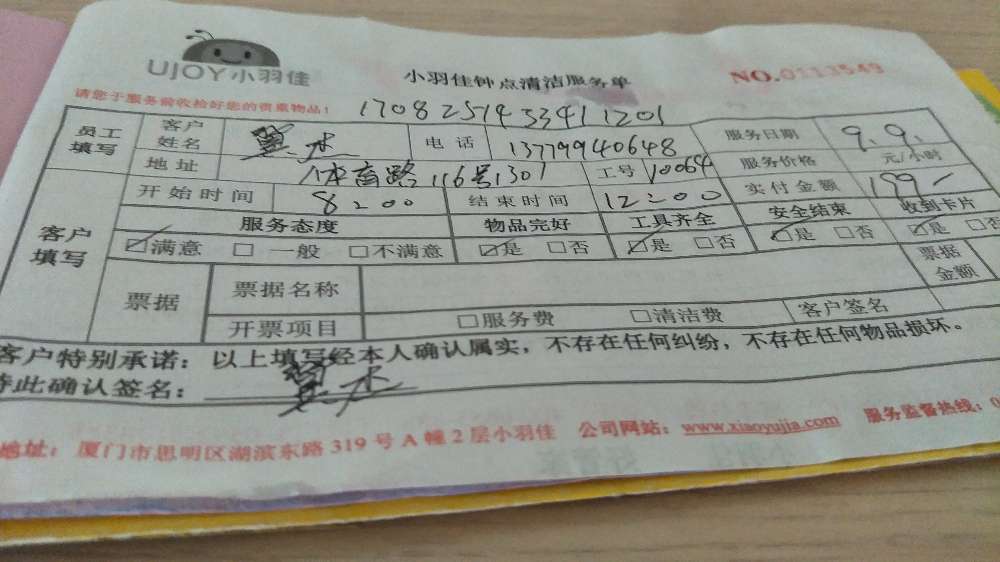 UJOY小羽佳
小羽佳钟点清洁服务单
NO.0113549
请您于服务前收捡好您的贵重物品!
员工填写 客户姓名 电话 13779940648 服务日期 9.9.
地址 体育路116号1301 工号 10064 服务价格 元/小时
客户填写 开始时间 8:00 结束时间 12:00 实付金额 199
服务态度 物品完好 工具齐全 安全结束 收到卡片
☑满意 □一般 □不满意 ☑是 □否 ☑是 □否 ☑是 □否 ☑是 □否
票据 票据名称 票据金额
开票项目 □服务费 □清洁费 客户签名
客户特别承诺:以上填写经本人确认属实,不存在任何纠纷,不存在任何物品损坏。
特此确认签名:
地址:厦门市思明区湖滨东路319号A幢2层小羽佳 公司网站:www.xiaoyujia.com 服务监督热线:0